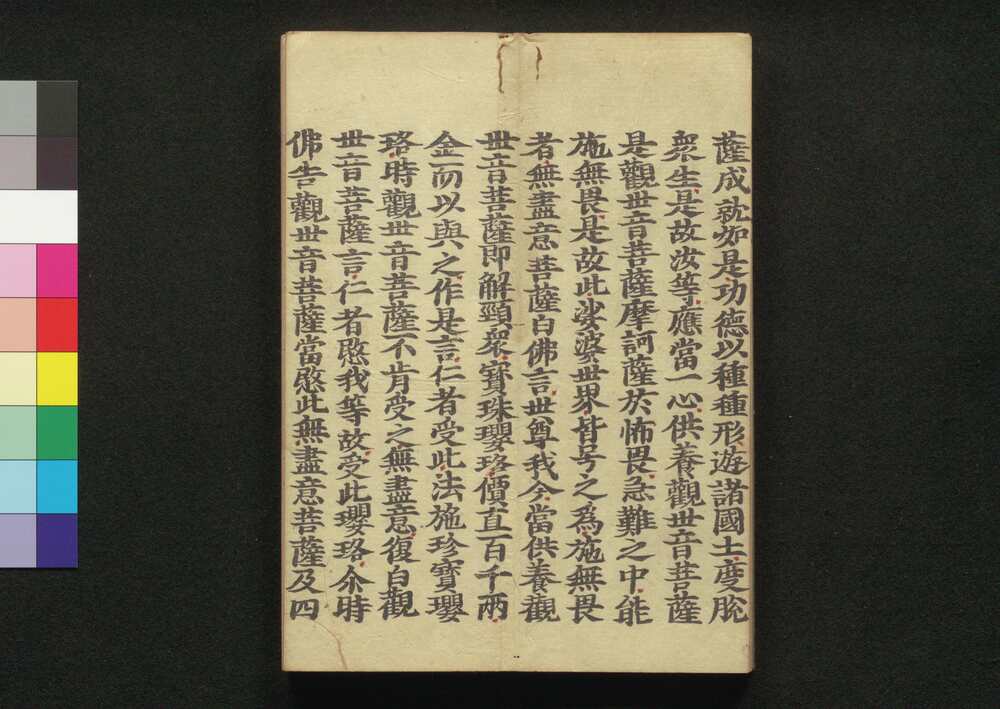 薩成就如是功德以種種形遊諸國土度脫
衆生是故汝等應當一心供養觀世音菩薩
是觀世音菩薩摩訶薩於怖畏急難之中能
施無畏是故此娑婆世界皆号之為施無畏
者無盡意菩薩白佛言世尊我今當供養觀
世音菩薩即解頸衆寶珠瓔珞價直百千兩
金而以與之作是言仁者受此法施珍寶瓔
珞時觀世音菩薩不肯受之無盡意復白觀
世音菩薩言仁者愍我等故受此瓔珞尒時
佛告觀世音菩薩當愍此無盡意菩薩及四